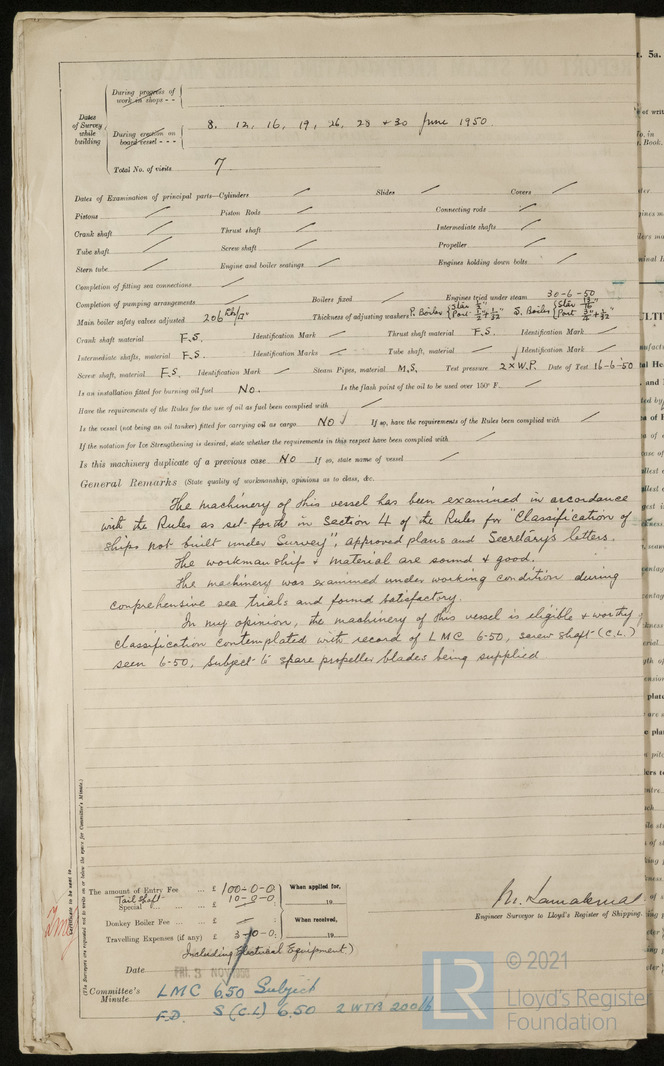 During progress of
work in shops - -
Dates
of Survey
while
building
During erection on
board vessel - - -
8. 12, 16, 19, 26, 28 + 30 June 1950.
Total No. of visits 7
Dates of Examination of principal parts—Cylinders Slides Covers
Pistons Piston Rods Connecting rods
Crank shaft Thrust shaft Intermediate shafts
Tube shaft Screw shaft Propeller
Stern tube Engine and boiler seatings Engines holding down bolts
Completion of fitting sea connections
Completion of pumping arrangements Boilers fixed Engines tried under steam 30-6-50
Main boiler safety valves adjusted 206 Thickness of adjusting washers P. Boiler Star Port S. Boiler Star Port
Crank shaft material F.S. Identification Mark Thrust shaft material F.S. Identification Mark
Intermediate shafts, material F.S. Identification Marks Tube shaft, material Identification Mark
Screw shaft, material F.S. Identification Mark Steam Pipes, material M.S. Test pressure 2 x W.P. Date of Test 16-6-50
Is an installation fitted for burning oil fuel No. Is the flash point of the oil to be used over 150° F.
Have the requirements of the Rules for the use of oil as fuel been complied with
Is the vessel (not being an oil tanker) fitted for carrying oil as cargo No If so, have the requirements of the Rules been complied with
If the notation for Ice Strengthening is desired, state whether the requirements in this respect have been complied with
Is this machinery duplicate of a previous case No If so, state name of vessel
General Remarks (State quality of workmanship, opinions as to class, &c.
The machinery of this vessel has been examined in accordance
with the Rules as set forth in Section 4 of the Rules for "Classification of
ships not built under Survey", approved plans and Secretary's letters.
The workmanship + material are sound + good.
The machinery was examined under working condition during
comprehensive sea trials and found satisfactory.
In my opinion, the machinery of this vessel is eligible + worthy of
classification contemplated with record of LMC 6-50, screw shaft (C.L.)
seen 6-50, subject to spare propeller blades being supplied
The amount of Entry Fee ... £ 100-0-0 When applied for,
Tail shaft
Special £ 10-0-0 19
Donkey Boiler Fee ... £ When received,
Travelling Expenses (if any) £ 3-10-0 19
(Including Electrical Equipment)
Engineer Surveyor to Lloyd's Register of Shipping.
Date FRI. 3 NOV 1950
Committee's
Minute
LMC 6.50 Subject
F.D. S (C.L) 6.50 2 WTB 200 lb
Certificate to be sent to
(The Surveyors are requested not to write on or below the space for Committee's Minute.)
LR
© 2021
Lloyd's Register
Foundation